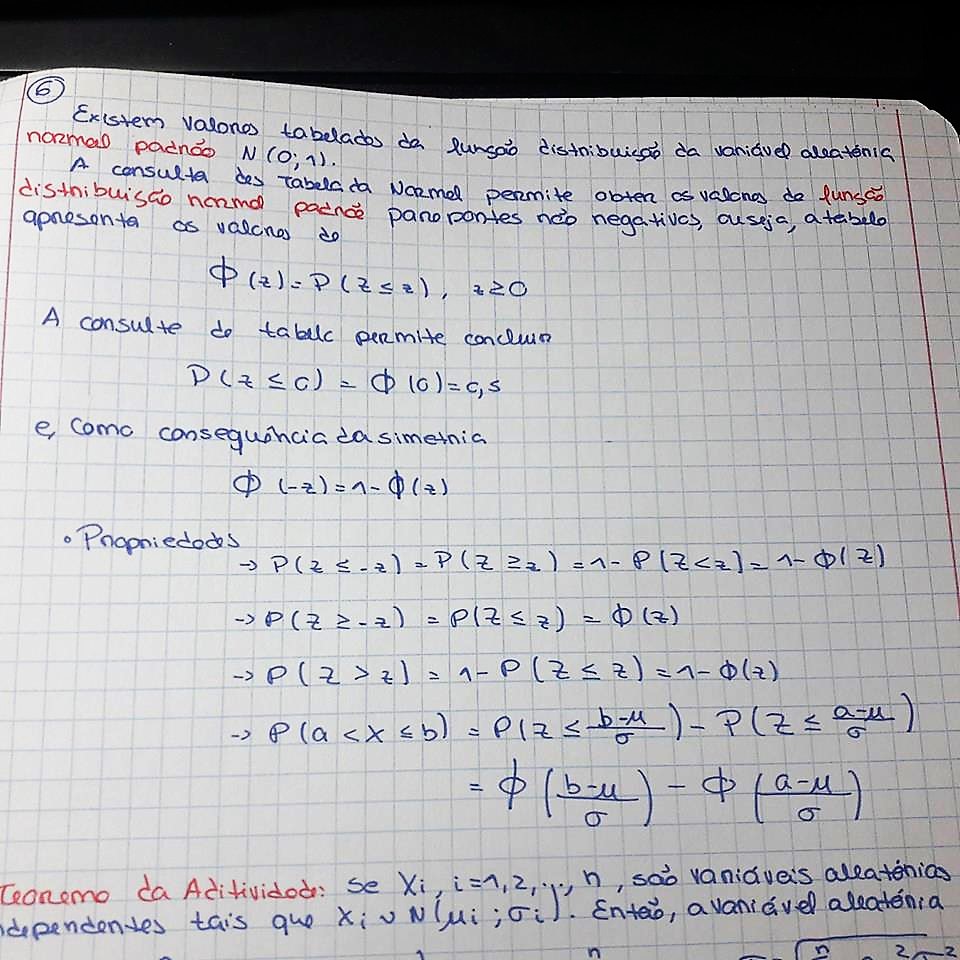 6
Existem valores tabelados da função distribuição da variável aleatória
normal padrão N(0;1).
A consulta das Tabela da Normal permite obter os valores da função
distribuição normal padrão para pontos não negativos, ou seja, a tabela
apresenta os valores de
Φ(z) = P(Z ≤ z), z ≥ 0
A consulta da tabela permite concluir
P(z ≤ 0) = Φ(0) = 0,5
e, como consequência da simetria
Φ(-z) = 1 - Φ(z)
• Propriedades
→ P(Z ≤ -z) = P(Z ≥ z) = 1 - P(Z < z) = 1 - Φ(z)
→ P(Z ≥ -z) = P(Z ≤ z) = Φ(z)
→ P(Z > z) = 1 - P(Z ≤ z) = 1 - Φ(z)
→ P(a < X ≤ b) = P(Z ≤ (b-μ)/σ) - P(Z ≤ (a-μ)/σ)
= Φ((b-μ)/σ) - Φ((a-μ)/σ)
Teorema da Aditividade: se Xi, i=1,2,..., n, são variáveis aleatórias
independentes tais que Xi ∪ N(μi ; σi). Então, a variável aleatória